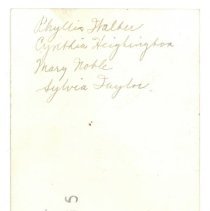 Phyllis Walker
Cynthia Heighington
Mary Noble
Sylvia Taylor
5